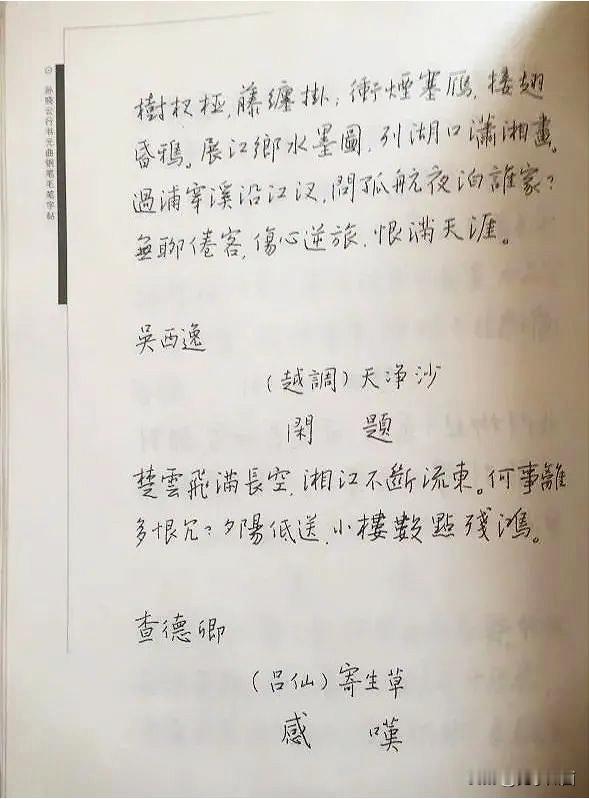 孙晓云行书元曲钢笔毛笔字帖
樹杈枒，藤纏掛；衝煙塞雁，接翅
昏鴉。展江鄉水墨圖，列湖口瀟湘畫。
過浦穿溪沿江汊，問孤航夜泊誰家？
無聊倦客，傷心逆旅，恨滿天涯。
吳西逸
（越調）天淨沙
閑 題
楚雲飛滿長空，湘江不斷流東。何事離
多恨冗？夕陽低送，小樓數點殘鴻。
查德卿
（呂仙）寄生草
感 嘆